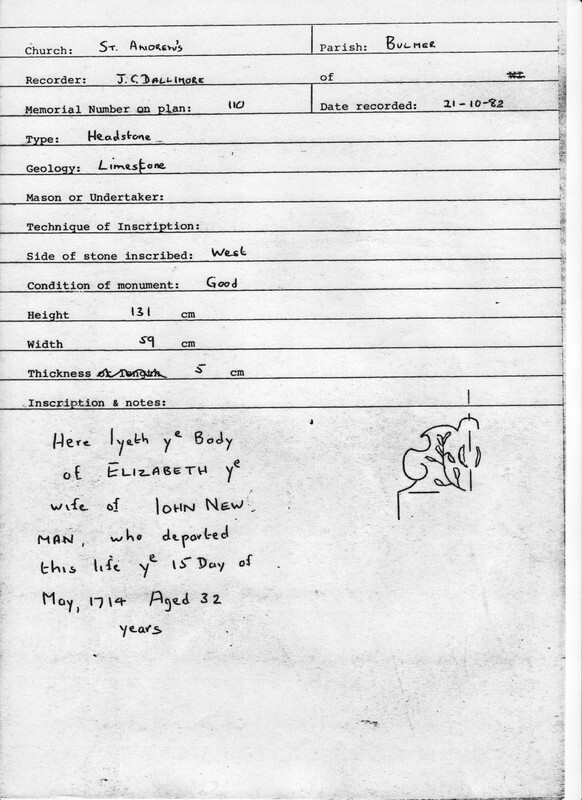 Church: ST. ANDREW'S Parish: BULMER
Recorder: J.C. DALLIMORE of
Memorial Number on plan: 110 Date recorded: 21-10-82
Type: Headstone
Geology: Limestone
Mason or Undertaker:
Technique of Inscription:
Side of stone inscribed: West
Condition of monument: Good
Height 131 cm
Width 59 cm
Thickness or length 5 cm
Inscription & notes:
Here lyeth yᵉ Body
of ELIZABETH yᵉ
wife of IOHN NEW
MAN, who departed
this life yᵉ 15 Day of
May, 1714 Aged 32
years